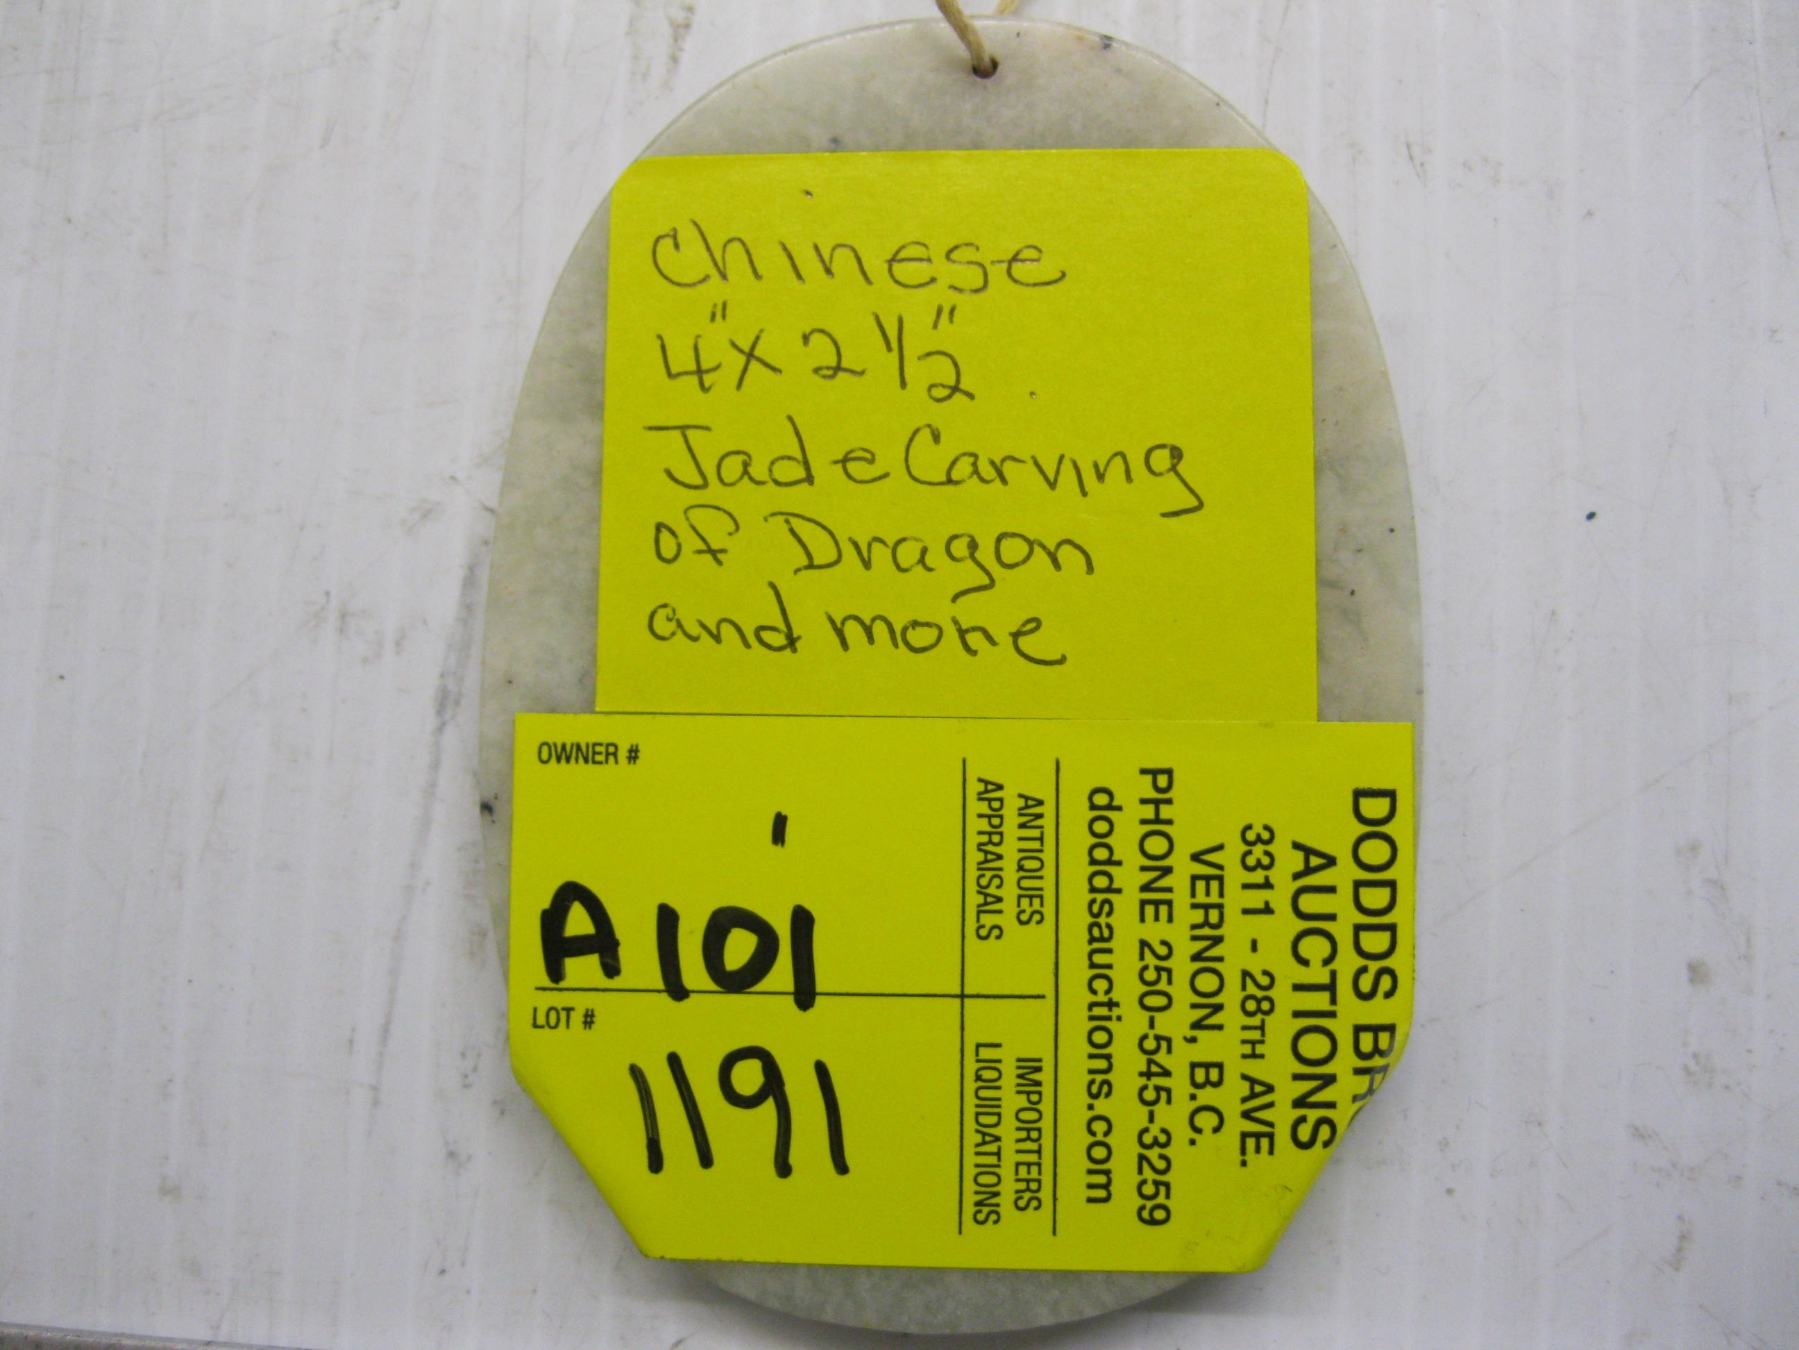 Chinese
4" X 2 1/2"
Jade Carving
of Dragon
and more
OWNER #
A 101
LOT #
1191
ANTIQUES
APPRAISALS
IMPORTERS
LIQUIDATIONS
DODDS
AUCTIONS
3311 - 28TH AVE.
VERNON, B.C.
PHONE 250-545-3259
doddsauctions.com